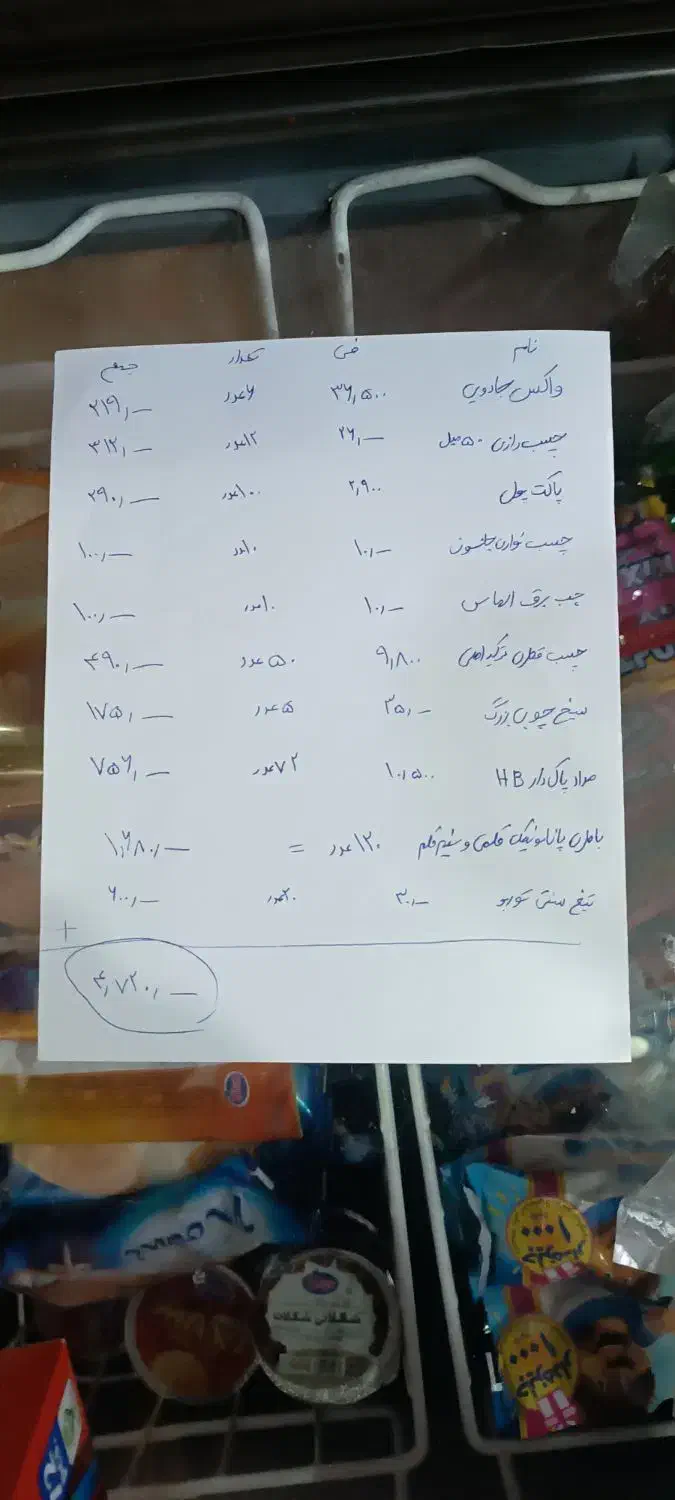 نام فی تعداد جمع
واکس جادویی ۳۶,۵۰۰ ۶عدد ۲۱۹,—
چسب رازی ۵۰میل ۲۶,— ۱۲عدد ۳۱۲,—
پاکت پولی ۲,۹۰۰ ۱۰۰عدد ۲۹۰,—
چسب نواری جانسون ۱۰,— ۱۰عدد ۱۰۰,—
چسب برق الماس ۱۰,— ۱۰عدد ۱۰۰,—
چسب قطره ترک اصلی ۹,۸۰۰ ۵۰عدد ۴۹۰,—
سیخ چوبی بزرگ ۳۵,— ۵عدد ۱۷۵,—
مداد پاک دار HB ۱۰,۵۰۰ ۷۲عدد ۷۵۶,—
باطری پاناسونیک قلمی و نیم قلم ۱۲۰عدد = ۱,۶۸۰,—
تیغ سنتی ۳۰,— ۲۰عدد ۶۰۰,—
+
۴,۷۲۰,—
شکلاتی شکلات
۱۰۰۰
۱۰۰۰